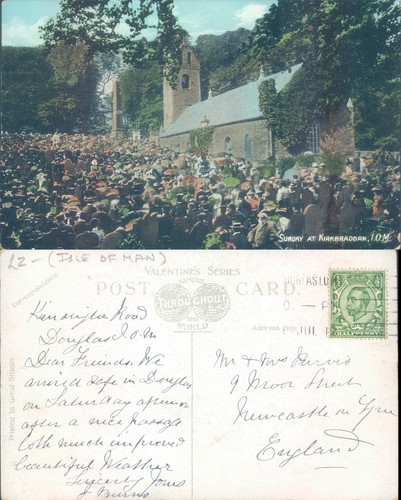 SUNDAY AT KIRKBRADDAN, I.O.M.
£2 - (ISLE OF MAN)
VALENTINE'S SERIES
POST CARD.
FAMOUS
THROUGHOUT
THE
WORLD
Correspondence
Address
Printed in Great Britain
HALFPENNY
Kensington Road
Douglas I.O.M
Dear Friends. We
arrived safe in Douglas
on Saturday afternoon
after a nice passage
both much improved
beautiful Weather
Sincerely Yours
J Burns
Mr & Mrs Purvis
9 Moor Street
Newcastle on Tyne
England